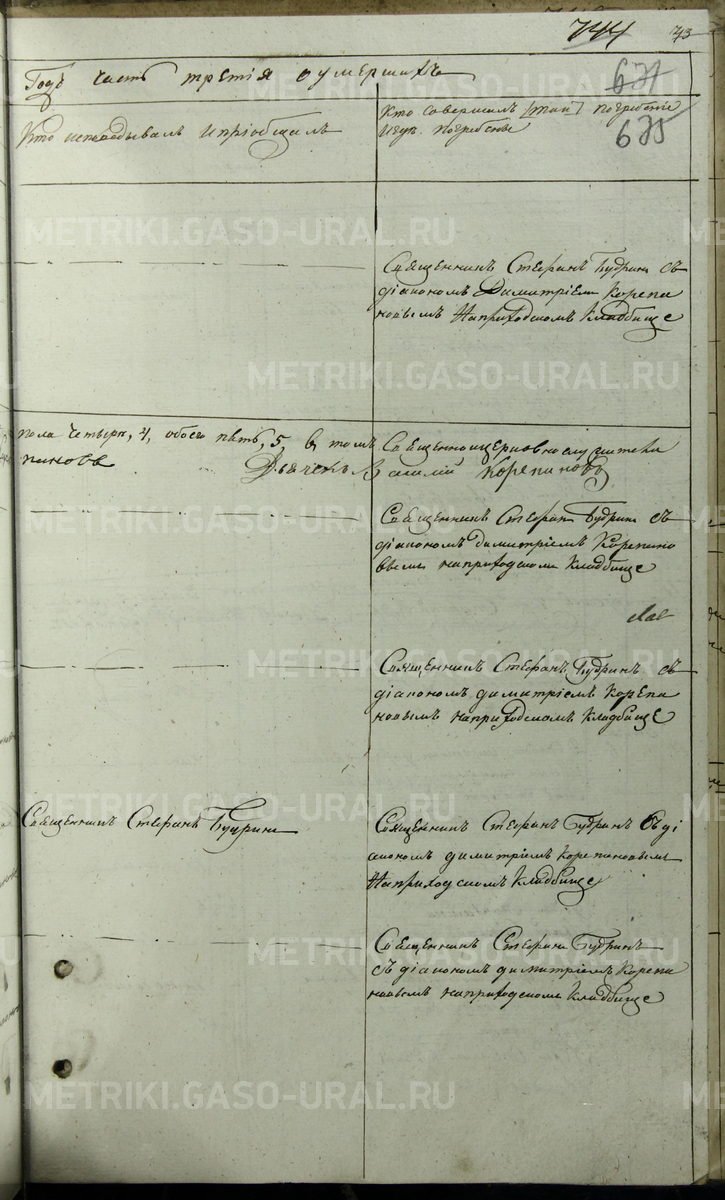 744 73
Годъ часть третія о умершихъ
671
Кто исповедывалъ и пріобщалъ
Кто совершалъ погребеніе
675
и где погребены
Священникъ Стефанъ Будринъ съ
діакономъ Димитріемъ Корепа
новымъ На приходскомъ Кладбище
пола четыри, 4, обоего пять, 5, в томъ
Священноцерковнослужители
Дьячекъ Корепиновъ
Священникъ Стефанъ Будринъ съ
діакономъ димитріемъ Корепино
вымъ на приходскомъ Кладбище
Священникъ Стефанъ Будринъ съ
діакономъ димитріемъ Корепа
новымъ на приходскомъ Кладбище
Священникъ Стефанъ Будринъ
Священникъ Стефанъ Будринъ Съ ді
акономъ димитріемъ Корепановымъ
На приходскомъ Кладбище
Священникъ Стефанъ Будринъ
съ діакономъ димитріемъ Корепа
новымъ на приходскомъ Кладбище
METRIKI.GASO-URAL.RU